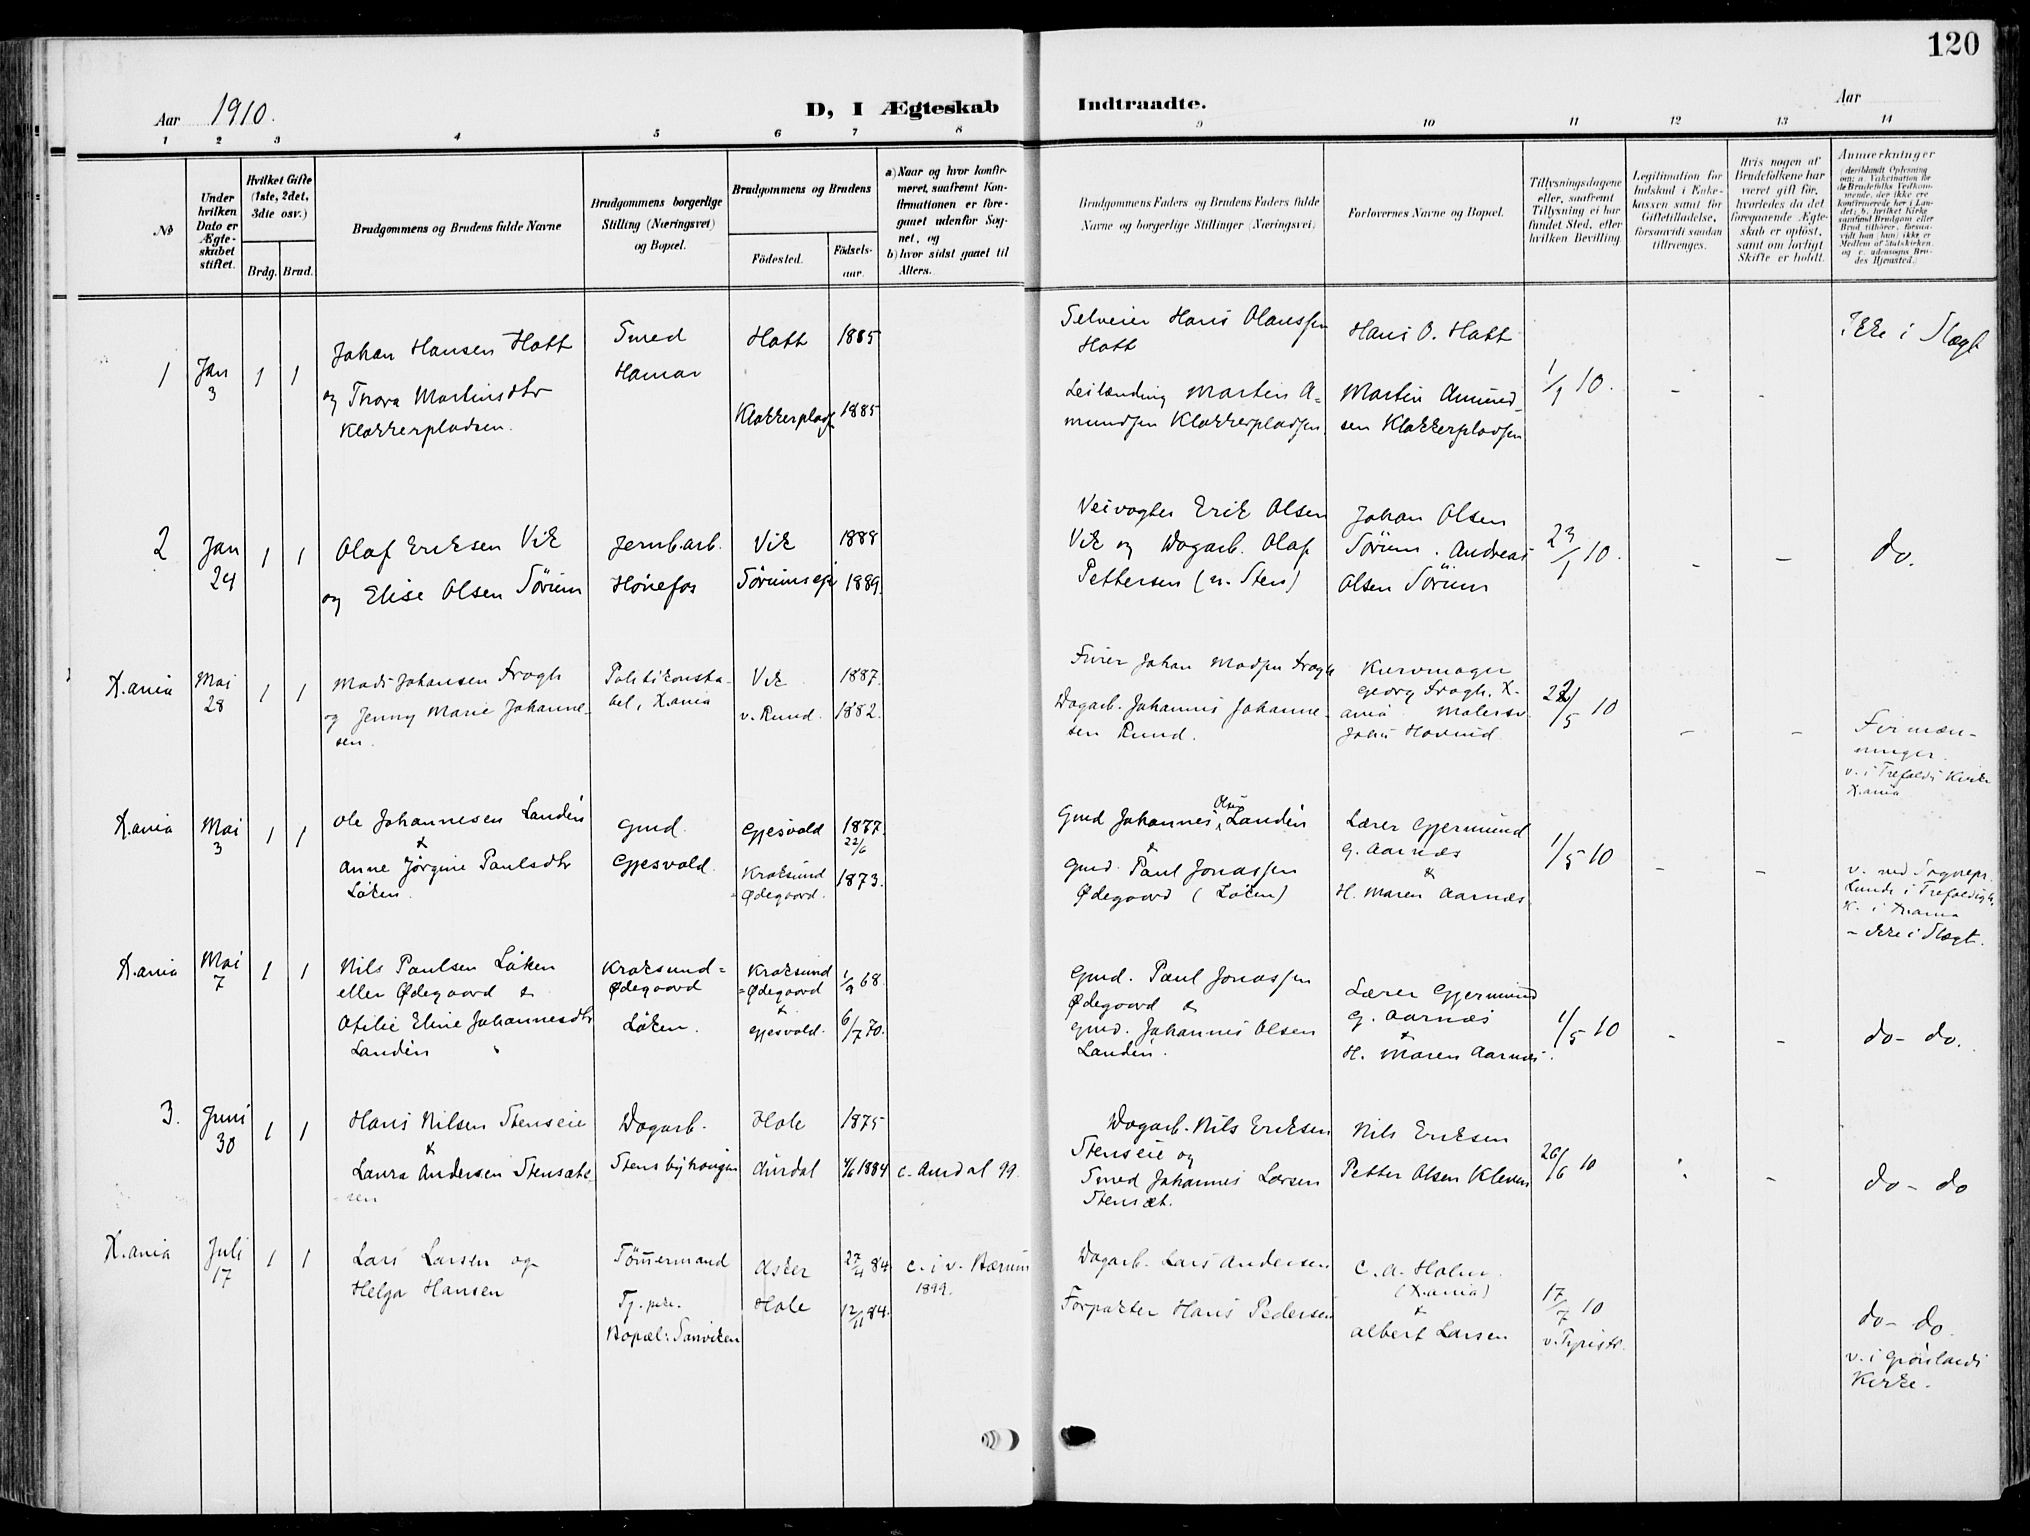 120
Aar 1910.
D, I Ægteskab Indtraadte.
Aar
1 2 3 4 5 6 7 8 9 10 11 12 13 14
No
Under hvilken Dato er Ægteskabet stiftet.
Hvilket Gifte (1ste, 2det, 3die osv.)
Brdg. Brud.
Brudgommens og Brudens fulde Navne
Brudgommens borgerlige Stilling (Næringsvei) og Bopæl.
Brudgommens og Brudens
Fødested. Fødselsaar.
a) Naar og hvor konfirmeret, saafremt Konfirmationen er foregaaet udenfor Sognet, og
b) hvor sidst gaaet til Alters.
Brudgommens Faders og Brudens Faders fulde Navne og borgerlige Stillinger (Næringsvei)
Forlovernes Navne og Bopæl.
Tillysningsdagene eller, saafremt Tillysning ei har fundet Sted, efter hvilken Bevilling.
Legitimation for Indskud i Enkekassen samt for Giftetilladelse, forsaavidt saadan tiltrænges.
Hvis nogen af Brudefolkene har været gift før, hvorledes da det foregaaende Ægteskab er opløst, samt om lovligt Skifte er holdt.
Anmærkninger
(deriblandt Oplysning om: a. Vakcination for de Brudefolks Vedkommende, der ikke ere konfirmerede her i Landet; b. hvilket Kirkesamfund Brudgom eller Brud tilhører, forsaavidt han (hun) ikke er Medlem af Statskirken, og c. udensogns Brudes Hjemsted.)
1 Jan 3 1 1
Johan Hansen Hatt
og Thora Martinsdtr
Klokkerpladsen.
Smed
Hamar
Hatt 1885
Klokkerpladsn 1885
Selveier Hans Olaussen
Hatt
Leilænding Martin A=
mundsen Klokkerpladsen.
Hans O. Hatt
Martin Amund
sen Klokkerpladsen
1/1 10.
-
Ikke i Slægt
2 Jan 24 1 1
Olaf Eriksen Vik
og Elise Olsen Sørum
Jernb.arb.
Hønefos
Vik 1888
Sørumseje 1889.
Veivogter Erik Olsen
Vik og Dagarb. Olaf
Pettersen (u. Sten)
Johan Olsen
Sørum. Andreas
Olsen Sørum
23/1 10.
- -
do.
X.ania Mai 28 1 1
Mads Johansen Frogh
og Jenny Marie Johanne-
sen.
Politikonsta-
bel, X.ania
Vik 1887.
v. Rund. 1882.
Furer Johan Madsen Frogh
Dagarb. Johannes Johanne-
sen Rund.
Kurvmager
Georg Frogh, X-
ania. Malersv.
John Hovind.
22/5 10
- -
Firmæn-
ninger.
v. i Trefoldi Kirke
X.ania
X.ania Mai 3 1 1
Ole Johannesen Landén
&
Anne Jørgine Paulsdtr
Løken.
Gmd.
Gjesvold.
Gjesvold 1877. 22/6
Kroksund
=Ødegaard. 1873.
Gmd Johannes Olsen Landén
&
Gmd. Paul Jonassen
Ødegaard (Løken)
Lærer Gjermund
G. Aarnæs
&
H. Maren Aarnæs
1/5 10
- -
v. ved Sognepr.
Lunde i Trefoldigh.
K. i X.ania
- ikke i Slægt.
X.ania Mai 7 1 1
Nils Paulsen Løken
eller Ødegaard &
Otilie Eline Johannesdtr
Landén
Kroksund=
Ødegaard
Løken.
Kroksund
=Ødegaard 1/9 68.
&
Gjesvold. 6/7 70.
Gmd. Paul Jonassen
Ødegaard &
Gmd. Johannes Olsen
Landén.
Lærer Gjermund
G. Aarnæs
&
H. Maren Aarnæs.
1/5 10
- -
do- do.
3. Juni 30 1 1
Hans Nilsen Stenseie
&
Laura Andersen Stensæte
-ren
Dagarb.
Stensbyhaugen
Hole 1875
Aurdal 4/6 1884
c. Aurdal 99.
Dagarb. Nils Eriksen
Stenseie og
Smed Johannes Larsen
Stensæt.
Nils Eriksen
Petter Olsen Kleven
26/6 10
-
do - do
X.ania Juli 17 1 1
Lars Larsen og
Helga Hansen
Tømmermand
Tj. pike.
Bopæl: Sanviken
Asker 27/4 84.
Hole 12/11 84.
c. i v. Bærum
1899.
Dagarb. Lars Andersen
Forpakter Hans Pedersen
C. A. Holm.
(X.ania)
&
Albert Larsen
17/7 10
v. Tyristr.
do- do.
v. i Grønlands
Kirke.